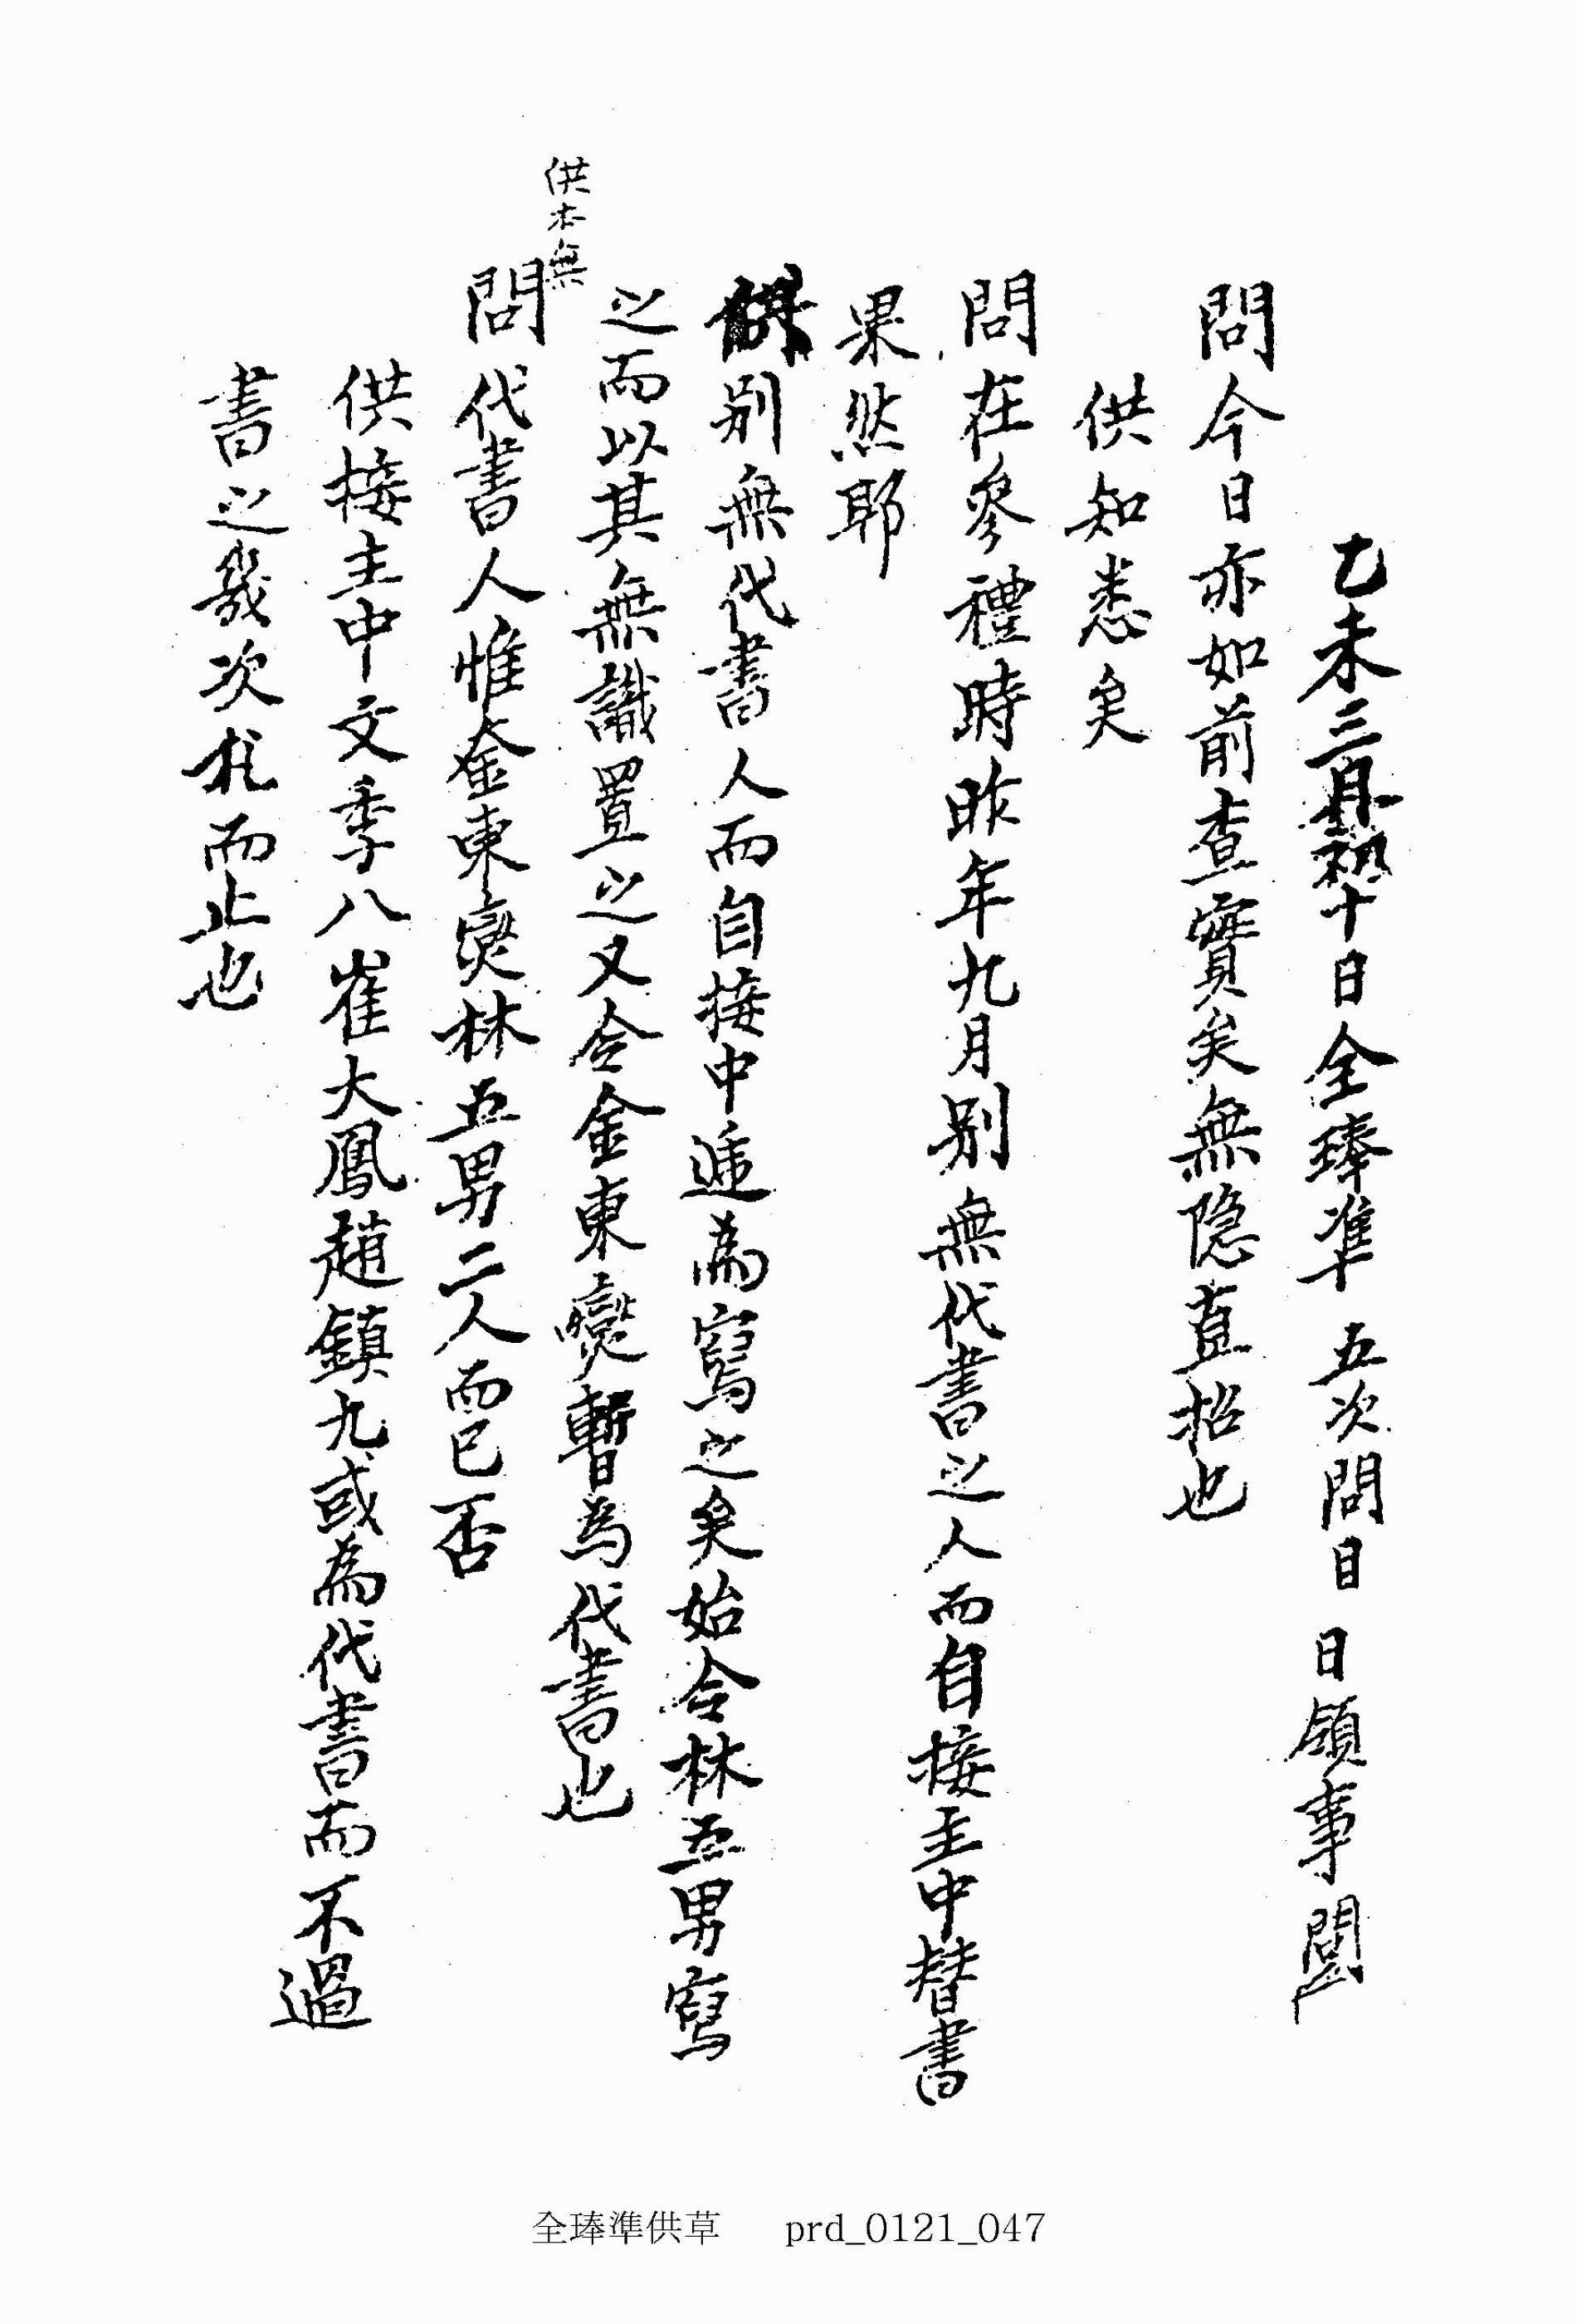 乙未三月初十日全琫準 五次問目 日領事問
問今日亦如前査實矣無隐直招也
供知悉矣
問在參禮時昨年九月别無代書之人而自接主中替書
果然耶
供别無代書人而自接中遞為寫之矣始令林五男寫
之而以其無識置之又令金東燮暫為代書也
供本無
問代書人惟金東燮林五男二人而已否
供接主中文季八崔大鳳趙鎮九或為代書而不過
書之幾次札而止也
全琫準供草 prd_0121_047